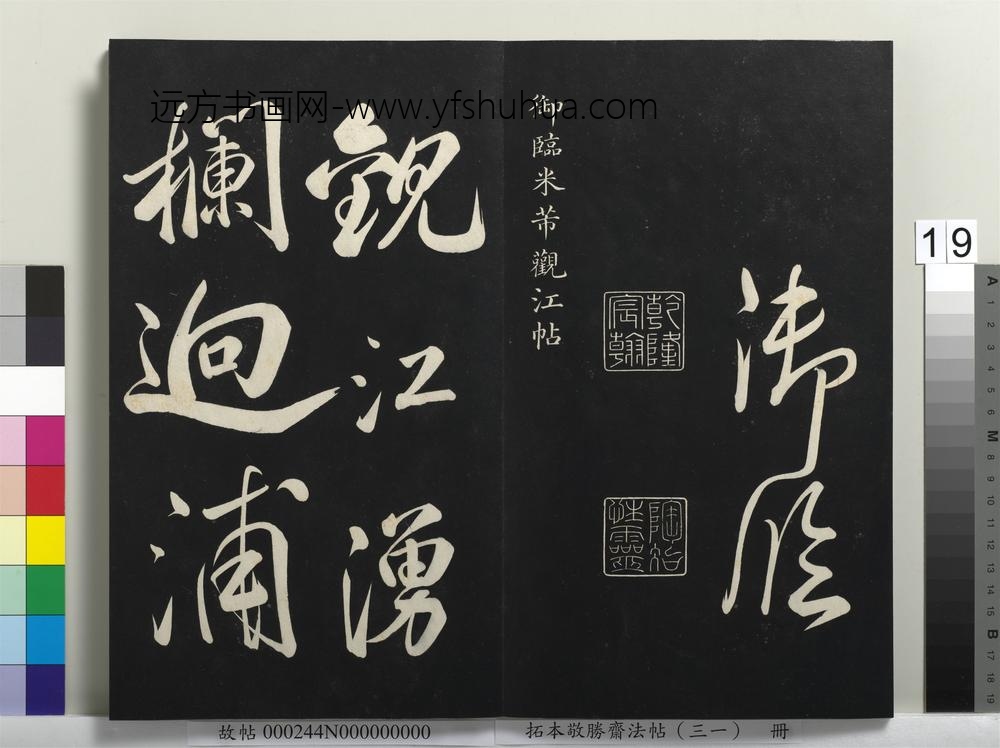 远方书画网-www.yfshuhua.com
御臨
乾隆
宸翰
陶冶
性靈
御臨米芾觀江帖
觀江湧
欄逈浦
19
A 1 2 3 4 5 6 M 8 9 10 11 12 13 14 15 B 17 18 19
故帖 000244N000000000
拓本敬勝齋法帖（三一） 冊